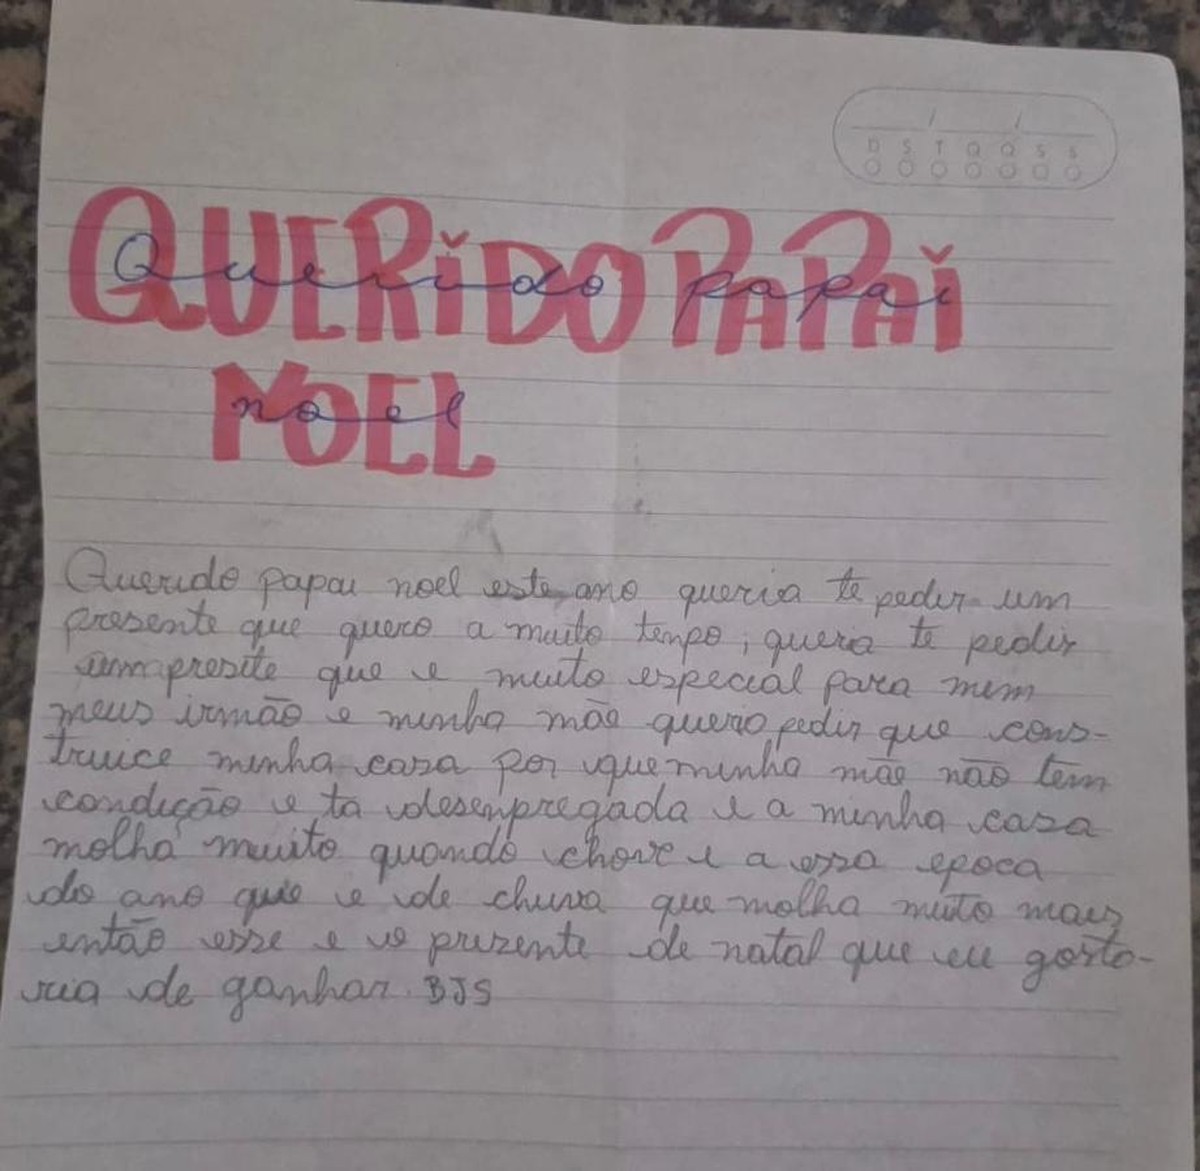 D S T Q Q S S
QUERIDO PAPAI
Querido papai
NOEL
noel
Querido papai noel este ano queria te pedir um
presente que quero a muito tenpo, queria te pedir
um presite que e muito especial para mim
meus irmão e minha mãe quero pedir que cons-
truice minha casa por que minha mãe não tem
condição e ta desenpregada e a minha casa
molha muito quando chove e a essa epoca
do ano que e de chuva que molha muito mais
então esse e o prezente de natal que eu gosta-
ria de ganhar. BJS